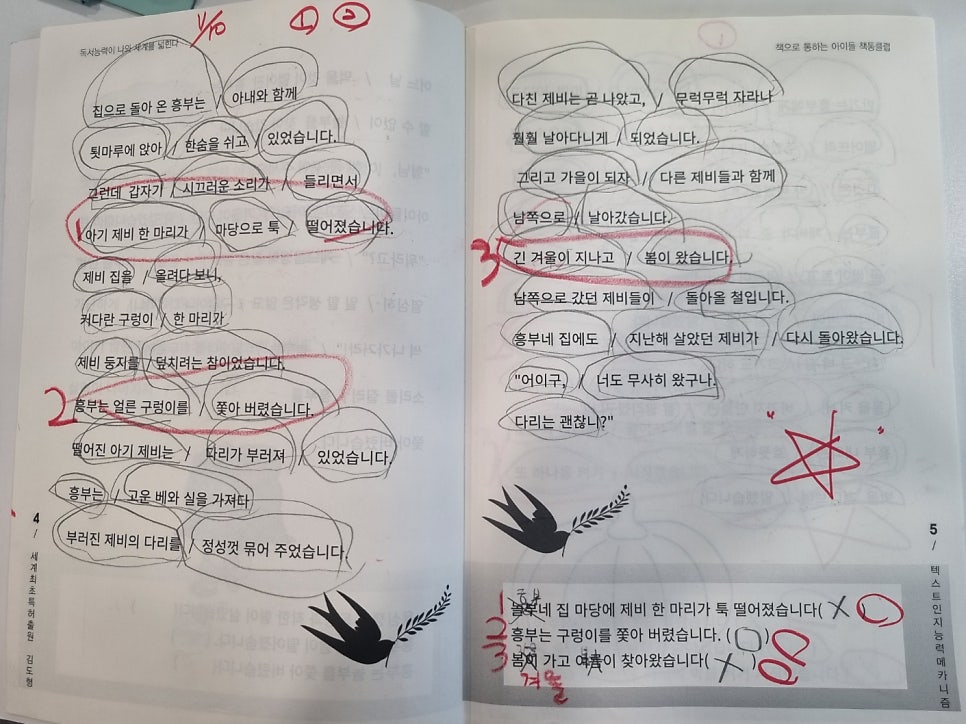 독서능력이 나와 세계를 넓힌다
1/10 ① ②
집으로 돌아 온 흥부는 / 아내와 함께
툇마루에 앉아 / 한숨을 쉬고 / 있었습니다.
그런데 갑자기 / 시끄러운 소리가 / 들리면서
1 아기 제비 한 마리가 / 마당으로 툭 / 떨어졌습니다.
제비 집을 / 올려다 보니,
커다란 구렁이 / 한 마리가
제비 둥지를 / 덮치려는 참이었습니다.
2 흥부는 얼른 구렁이를 / 쫓아 버렸습니다.
떨어진 아기 제비는 / 다리가 부러져 / 있었습니다.
흥부는 / 고운 베와 실을 가져다
부러진 제비의 다리를 / 정성껏 묶어 주었습니다.
4 / 세계최초특허출원 김도형
책으로 통하는 아이들 책통클럽
다친 제비는 곧 나았고, / 무럭무럭 자라나
훨훨 날아다니게 / 되었습니다.
그리고 가을이 되자 / 다른 제비들과 함께
남쪽으로 / 날아갔습니다.
3 긴 겨울이 지나고 / 봄이 왔습니다.
남쪽으로 갔던 제비들이 / 돌아올 철입니다.
흥부네 집에도 / 지난해 살았던 제비가 / 다시 돌아왔습니다.
"어이구, / 너도 무사히 왔구나.
다리는 괜찮니?"
흥부
1 놀부네 집 마당에 제비 한 마리가 툭 떨어졌습니다( X )
2 흥부는 구렁이를 쫓아 버렸습니다. ( O )
3 봄이 가고 여름이 찾아왔습니다( X )
겨울
5 / 텍스트인지능력메카니즘